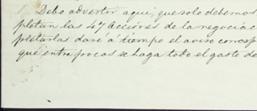 Debo advertir aqui que solo debemos
pletan las 47 Acciones de la negociac
pletarlas daré á tiempo el aviso
que entre pocos se haga todo el gasto de